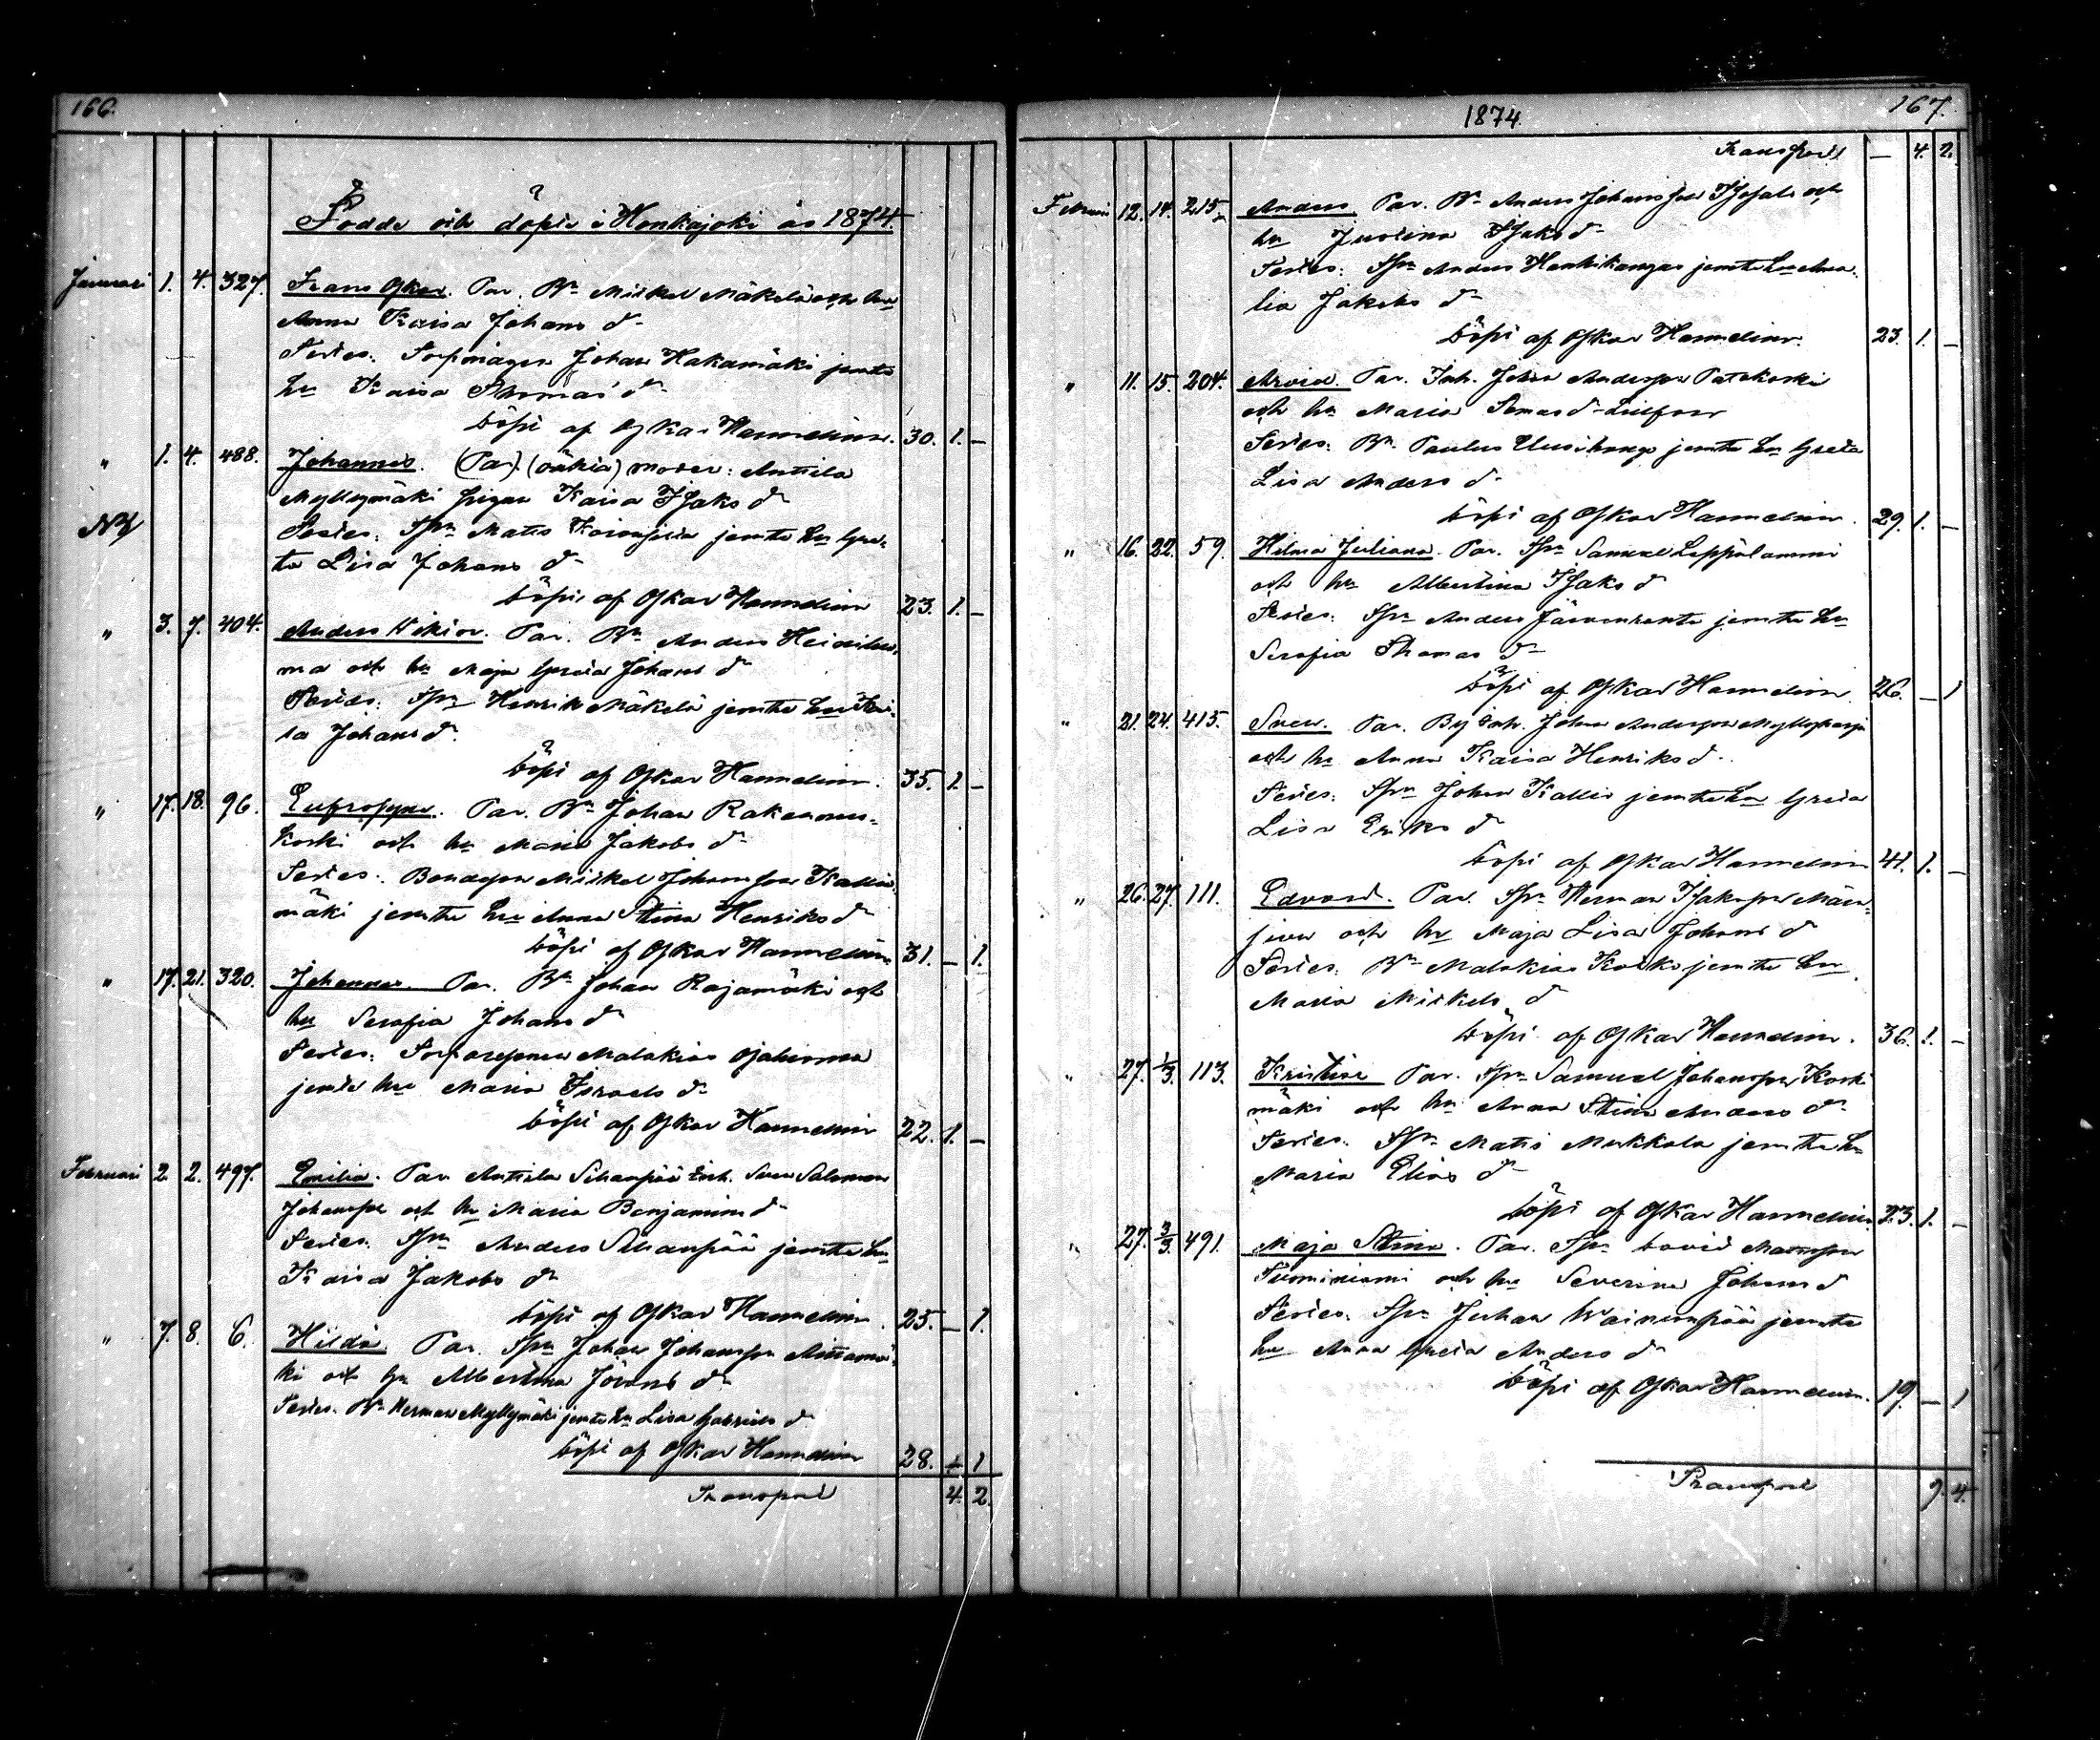 166.
Födde och döpte i Honkajoki år 1874.
Januari 1. 4. 327. Frans Oskar. Par. Bn Mickel Mäkelä och hu
Anna Kaisa Johans dr
Testes: Johan Hakamäki jemte
hu Kaisa Thomas dr
Döpt af Oskar Hannelius. 30. 1. –
" 1. 4. 488. Johannes. (Par). (oäkta) moder: Anttila
Myllymäki pigan Kaisa Isaks dr
NB
Testes: Spn Matts jemte hu Gre-
ta Lisa Johans dr
Döpt af Oskar Hannelius 23. 1. –
" 3. 7. 404. Anders Viktor. Par. Bn Anders
ma och hu Maja Greta Johans dr
Testes: Spn Henrik Mäkelä jemte hu
sa Johans dr
Döpt af Oskar Hannelius. 35. 1. –
" 17. 18. 96. Eufrosyne. Par. Bn Johan
koski och hu Maria Jakobs dr
Testes: Bondeson Mickel Johansson Kallio-
mäki jemte hu Anna Stina Henriks dr
Döpt af Oskar Hannelius 31. – 1.
" 17. 21. 320. Johannes. Par. Bn Johan Rajamäki och
hu Serafia Johans dr
Testes: Malakias Ojaluoma
jemte hu Maria Israels dr
Döpt af Oskar Hannelius 22. 1. –
Februari 2. 2. 497. Emilia. Par. Anttila Sihanpää Inh. Sven Salomon
Johansson och hu Maria Benjamins dr
Testes: Spn Anders Sihanpää jemte hu
Kaisa Jakobs dr
Döpt af Oskar Hannelius. 25. – 1.
" 7. 8. 6. Hilda. Par. Spn Johan Johansson Aittamä-
ki och hu Albertina Johans dr
Testes: Bn Herman Myllymäki jemte hu Lisa Gabriels dr
Döpt af Oskar Hannelius 28. – 1
Transport 4. 2.
1874.
167.
Transport – 4. 2.
Februari 12. 14. 215. Anders. Par. Bn Anders Johansson och
hu Justina Isaks dr
Testes: Spn Anders Hankikangas jemte hu Ama-
lia Jakobs dr
Döpt af Oskar Hannelius. 23. 1. –
" 11. 15. 204. Arvid. Par. Inh. Johan Andersson Patokoski
och hu Maria
Testes: Bn Paulus jemte hu Greta
Lisa Anders dr
Döpt af Oskar Hannelius. 29. 1. –
" 16. 22. 59. Hilma Juliana. Par. Spn Samuel Leppälammi
och hu Albertina Isaks dr
Testes: Spn Anders Järvenranta jemte hu
Serafia Thomas dr
Döpt af Oskar Hannelius 26. – 1
" 21. 24. 415. Sven. Par. By inh. Johan Andersson Myllyharju
och hu Anna Kaisa Henriks dr.
Testes: Spn Johan Kallio jemte hu Greta
Lisa Eriks dr
Döpt af Oskar Hannelius 41. 1. –
" 26. 27. 111. Edvard. Par. Spn Herman Isaksson
och hu Maja Lisa Johans dr
Testes: Bn Malakias Koski jemte hu
Maria Mickels dr
Döpt af Oskar Hannelius. 36. 1. –
" 27. 1/3. 113. Kristian Par. Spn Samuel Johansson Koski
mäki och hu Anna Stina Anders dr
Testes: Spn Matts Markkola jemte hu
Maria Elias dr
Döpt af Oskar Hannelius 23. 1. –
" 27. 3/3. 491. Maja Stina. Par. Spn David
Tuominiemi och hu Severina Johans dr
Testes: Spn Johan jemte
hu Anna Greta Anders dr
Döpt af Oskar Hannelius. 19. – 1
Transport 9. 4.